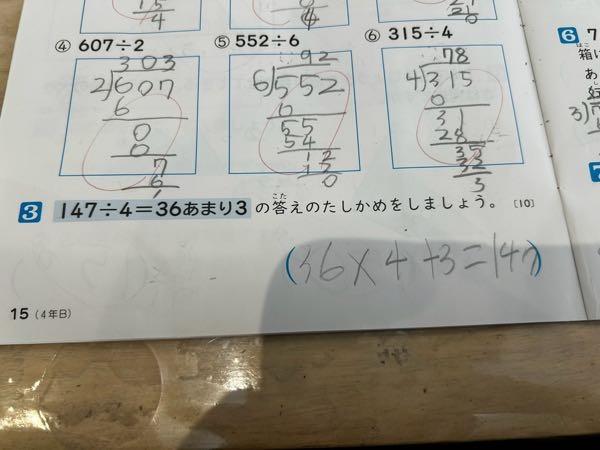 15
4
④ 607÷2
303
2)607
6
0
0
7
6
⑤ 552÷6
92
6)552
0
55
54
12
12
0
⑥ 315÷4
78
4)315
0
31
28
35
32
3
6 7
箱
はこ
あ
3)7
7
3 147÷4=36あまり3 の答えのたしかめをしましょう。 [10]
こた
(36×4+3=147)
15(4年B)